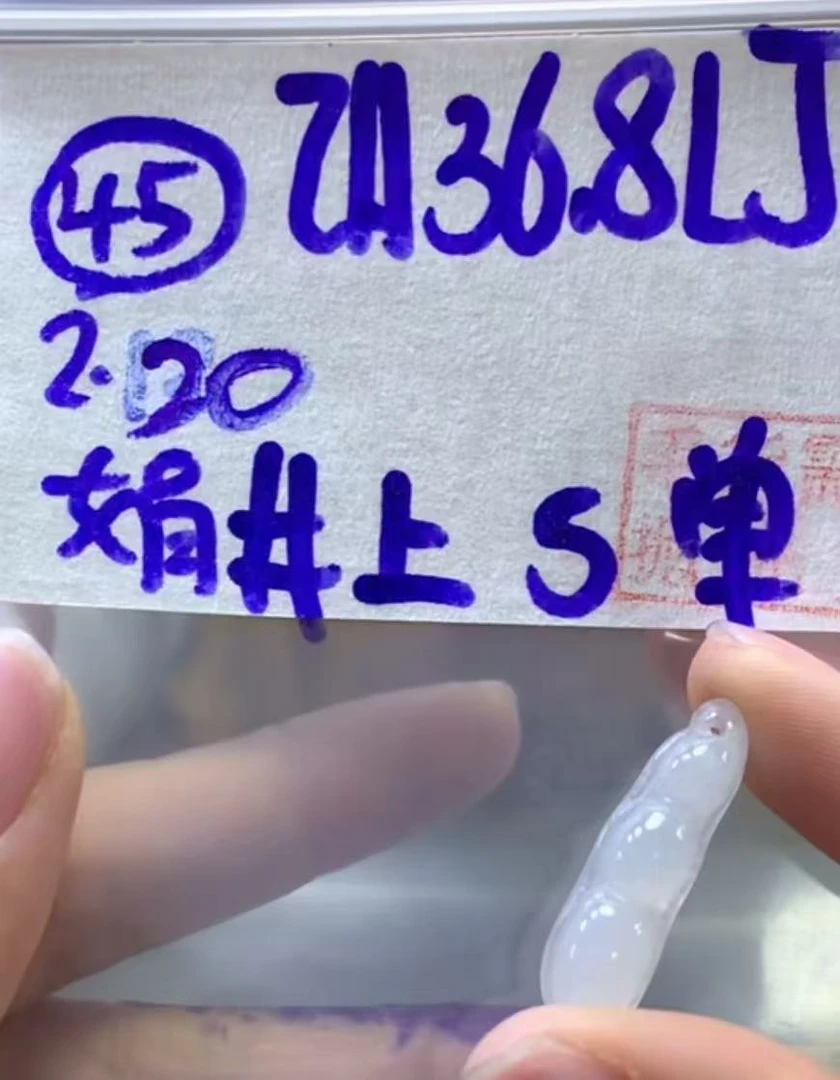 45 ZA36.8LJ
2.20
娟井上 S 单